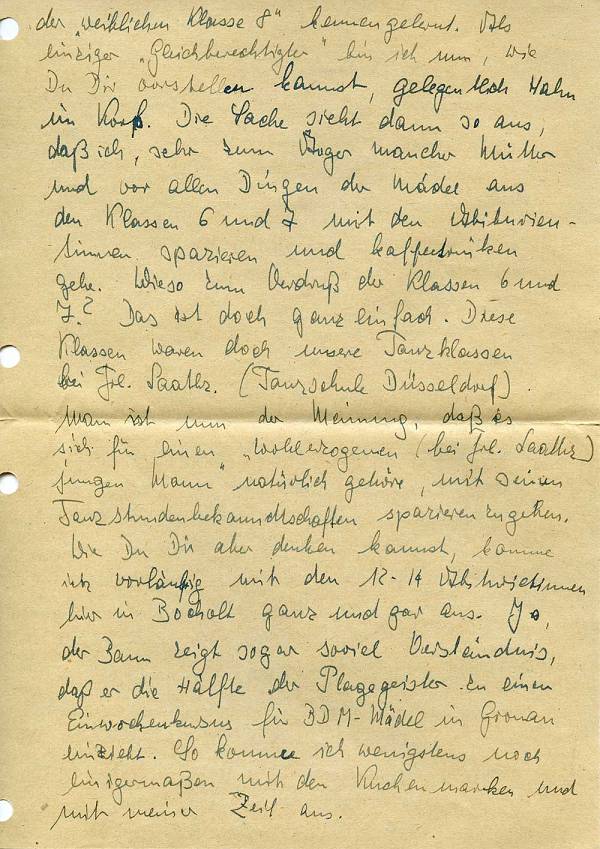 der „weiblichen Klasse 8" kennengelernt. Als
einziger „Gleichberechtigter" bin ich nun, wie
Du Dir vorstellen kannst, gelegentlich Hahn
im Korb. Die Sache sieht dann so aus,
daß ich, sehr zum Ärger mancher Mütter
und vor allen Dingen der Mädel aus
den Klassen 6 und 7 mit den Abiturien-
tinnen spazieren und kaffeetrinken
gehe. Wieso zum Verdruß der Klassen 6 und
7.? Das ist doch ganz einfach. Diese
Klassen waren doch unsere Tanzklassen
bei Frl. Saathz. (Tanzschule Düsseldorf).
Man ist nun der Meinung, daß es
sich für einen „wohlerzogenen (bei Frl. Saathz)
jungen Mann" natürlich gehöre, mit seinen
Tanzstundenbekanndtschaften spazierenzugehen.
Wie Du Dir aber denken kannst, komme
ich vorläufig mit den 12-14 Abiturientinnen
hier in Bocholt ganz und gar aus. Ja,
der Bann zeigt sogar soviel Verständnis,
daß er die Hälfte der Plagegeister zu einen
Einwochenkursus für BDM-Mädel in Gronau
einzieht. So komme ich wenigstens noch
einigermaßen mit den Kuchenmarken und
mit meiner Zeit aus.